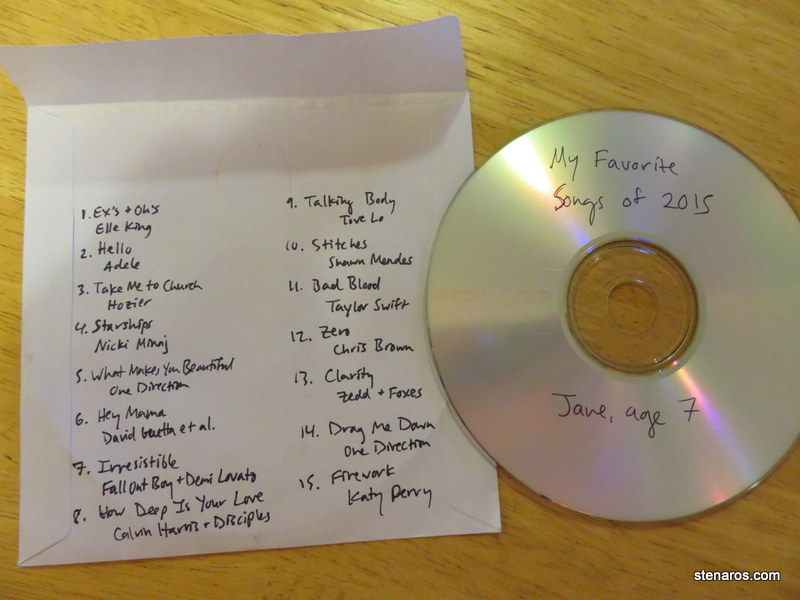 1. Ex's + Oh's
Elle King
2. Hello
Adele
3. Take Me to Church
Hozier
4. Starships
Nicki Minaj
5. What Makes You Beautiful
One Direction
6. Hey Mama
David Guetta et al.
7. Irresistible
Fall Out Boy + Demi Lovato
8. How Deep Is Your Love
Calvin Harris + Disciples
9. Talking Body
Tove Lo
10. Stitches
Shawn Mendes
11. Bad Blood
Taylor Swift
12. Zero
Chris Brown
13. Clarity
Zedd + Foxes
14. Drag Me Down
One Direction
15. Firework
Katy Perry
My Favorite
Songs of 2015
Jane, age 7
stenaros.com